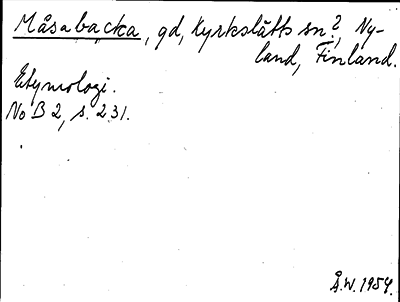 Måsabacka, gd, Kyrkslätts sn?, Ny-
land, Finland.
Etymologi.
No B 2, s. 231.
Å.W. 1954.